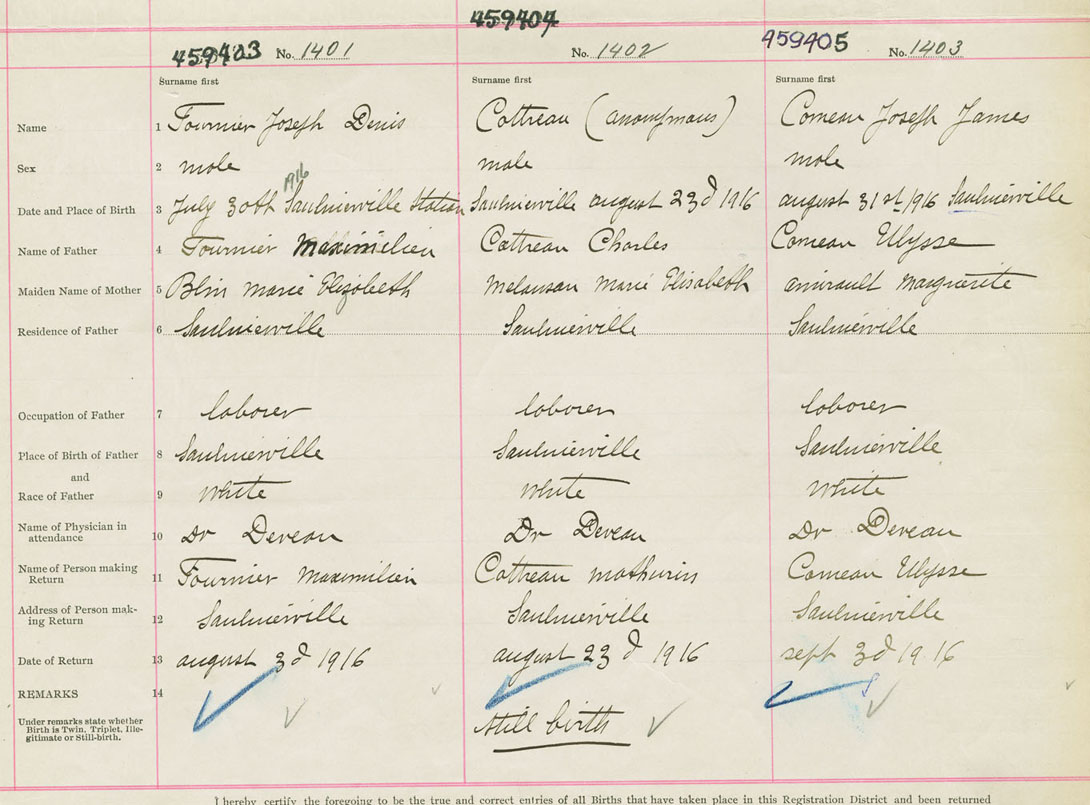 459404
459403 No. 1401 No. 1402 459405 No. 1403
Surname first Surname first Surname first
Name 1 Fournier Joseph Denis Cottreau (anonymous) Comeau Joseph James
Sex 2 male male male
1916
Date and Place of Birth 3 July 30th Saulnierville Station Saulnierville august 23d 1916 august 31st/1916 Saulnierville
Name of Father 4 Fournier Maximilien Cottreau Charles Comeau Ulysse
Maiden Name of Mother 5 Blin marie Elizabeth Melanson Marie Elisabeth amirault Marguerite
Residence of Father 6 Saulnierville Saulnierville Saulnierville
Occupation of Father 7 laborer laborer laborer
Place of Birth of Father 8 Saulnierville Saulnierville Saulnierville
and
Race of Father 9 White White White
Name of Physician in
attendance 10 Dr Deveau Dr Deveau Dr Deveau
Name of Person making
Return 11 Fournier Maximilien Cottreau mathurin Comeau Ulysse
Address of Person mak-
ing Return 12 Saulnierville Saulnierville Saulnierville
Date of Return 13 august 3d 1916 august 23d 1916 sept 3d 1916
REMARKS 14
Under remarks state whether
Birth is Twin, Triplet, Ille-
gitimate or Still-birth.
still birth
I hereby certify the foregoing to be the true and correct entries of all Births that have taken place in this Registration District and been returned